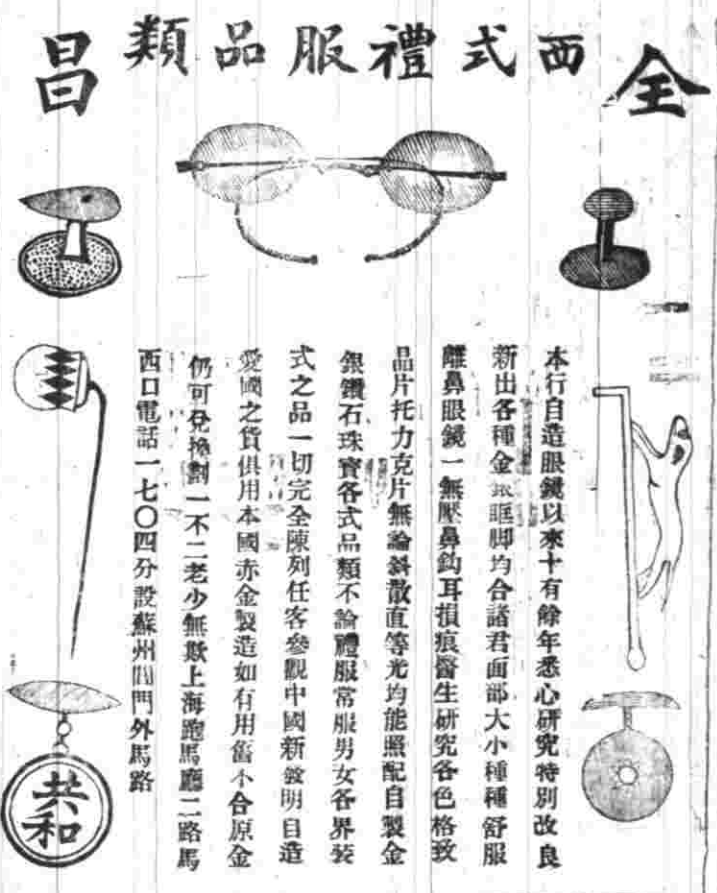 全昌
西式禮服品類
本行自造眼鏡以來十有餘年悉心研究特別改良
新出各種金銀眶脚均合諸君面部大小種種舒服
離鼻眼鏡一無壓鼻鈎耳損痕醫生研究各色格致
晶片托力克片無論斜散直等光均能照配自製金
銀鑽石珠寶各式品類不論禮服常服男女各界裝
式之品一切完全陳列任客參觀中國新發明自造
愛國之貨俱用本國赤金製造如有用舊不合原金
仍可兌換劃一不二老少無欺上海跑馬廳二路馬
西口電話一七〇四分設蘇州閶門外馬路
共和